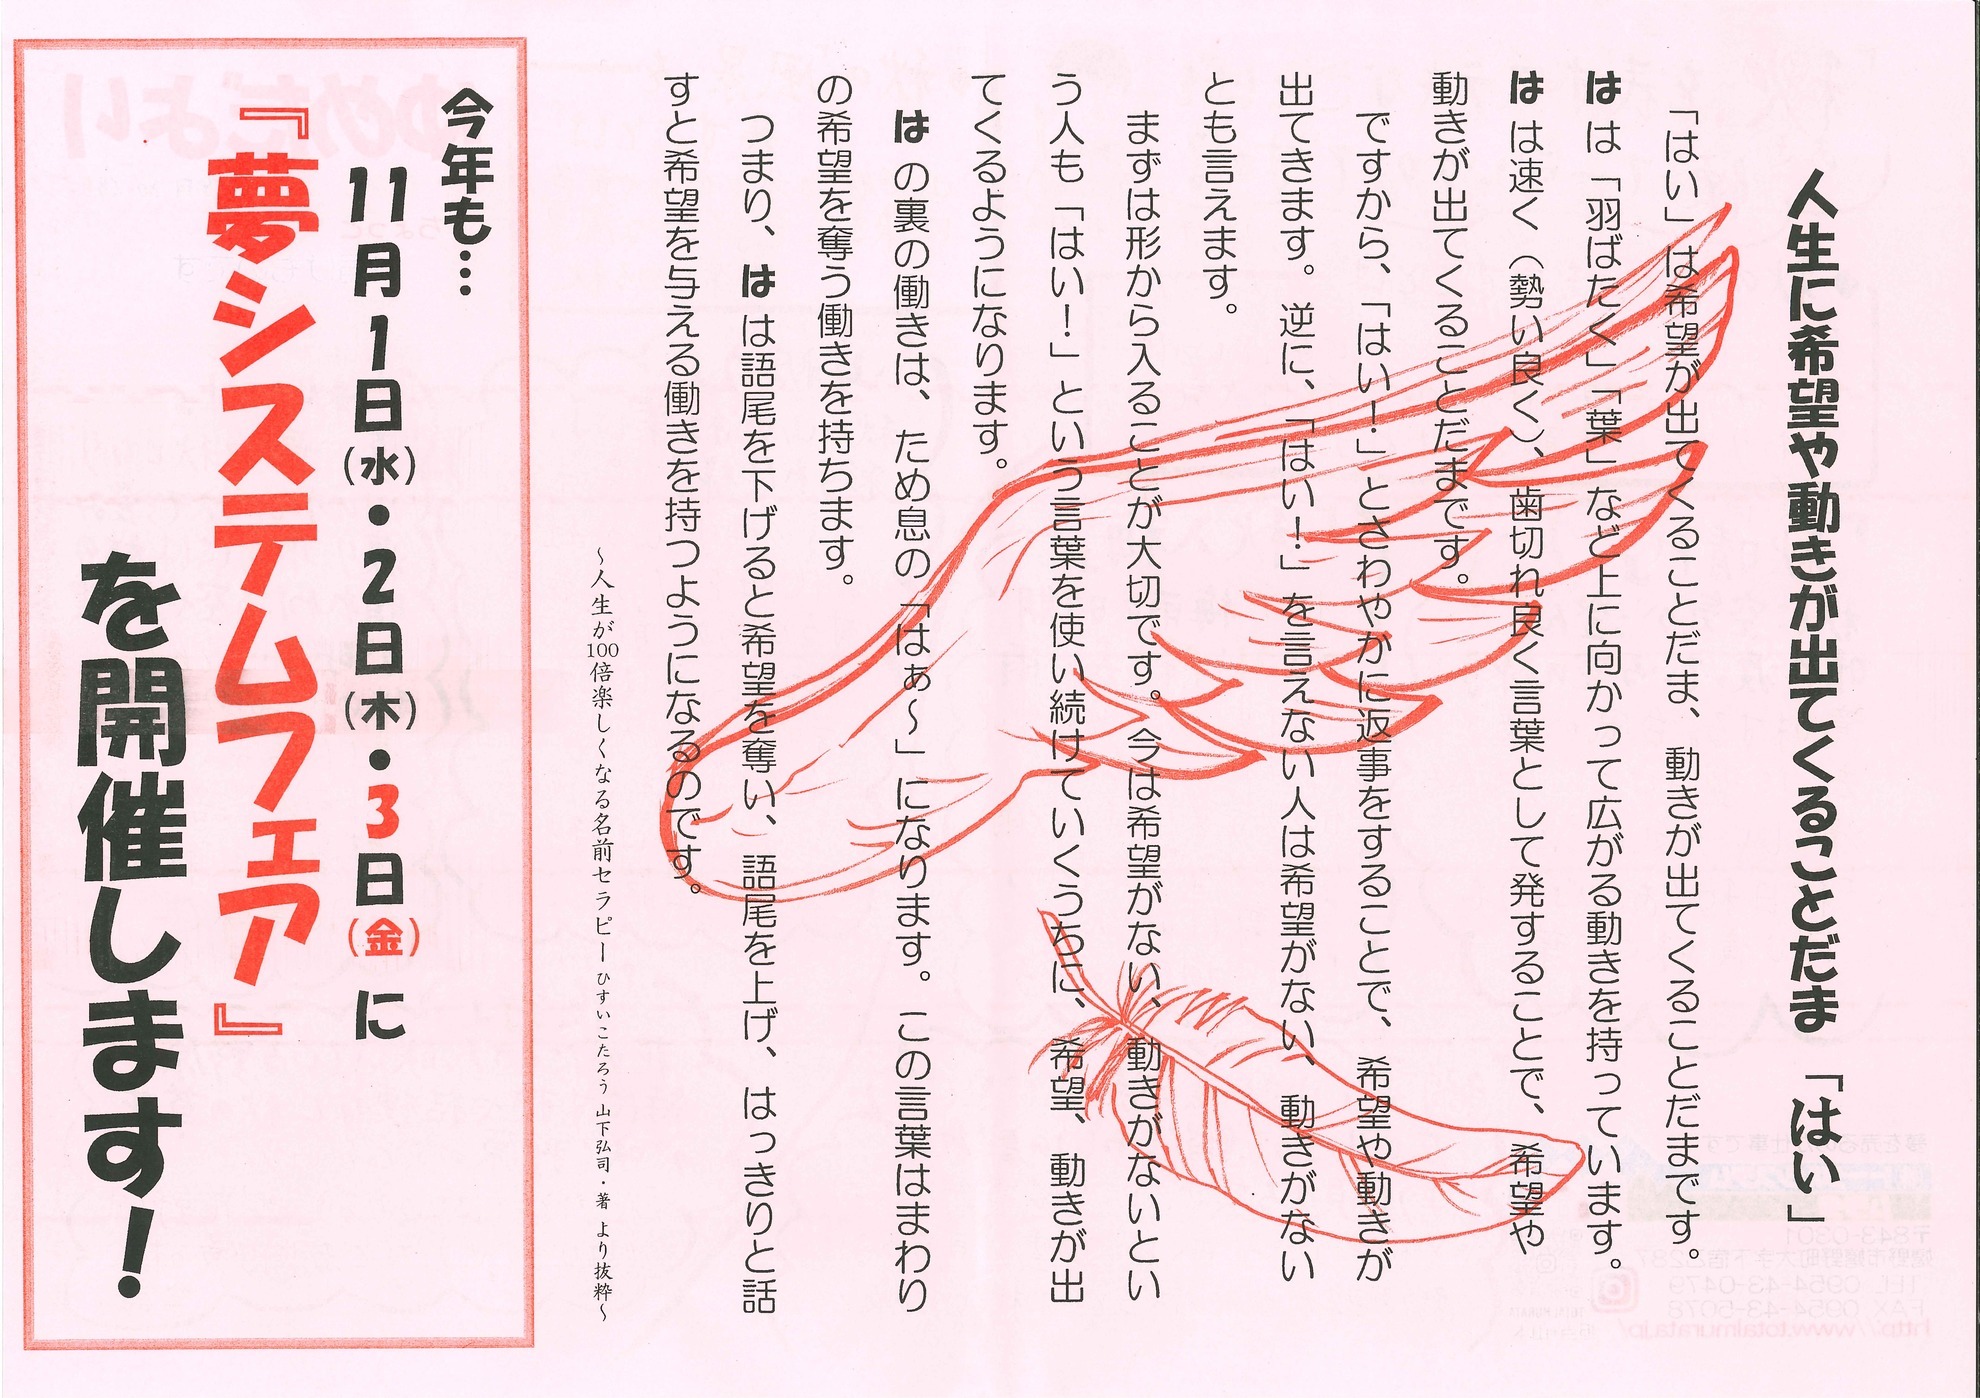 人生に希望や動きが出てくることだま「はい」
「はい」は希望が出てくることだま、動きが出てくることだまです。
はは「羽ばたく」「葉」など上に向かって広がる動きを持っています。
はは速く（勢い良く）、歯切れ良く言葉として発することで、希望や
動きが出てくることだまです。
ですから、「はい！」とさわやかに返事をすることで、希望や動きが
出てきます。逆に、「はい！」を言えない人は希望がない、動きがない
とも言えます。
まずは形から入ることが大切です。今は希望がない、動きがないとい
う人も「はい！」という言葉を使い続けていくうちに、希望、動きが出
てくるようになります。
はの裏の働きは、ため息の「はぁ～」になります。この言葉はまわり
の希望を奪う働きを持ちます。
つまり、はは語尾を下げると希望を奪い、語尾を上げ、はっきりと話
すと希望を与える働きを持つようになるのです。
～人生が100倍楽しくなる名前セラピー ひすいこたろう 山下弘司・著 より抜粋～
今年も…
11月1日(水)・2日(木)・3日(金)に
『夢システムフェア』
を開催します！